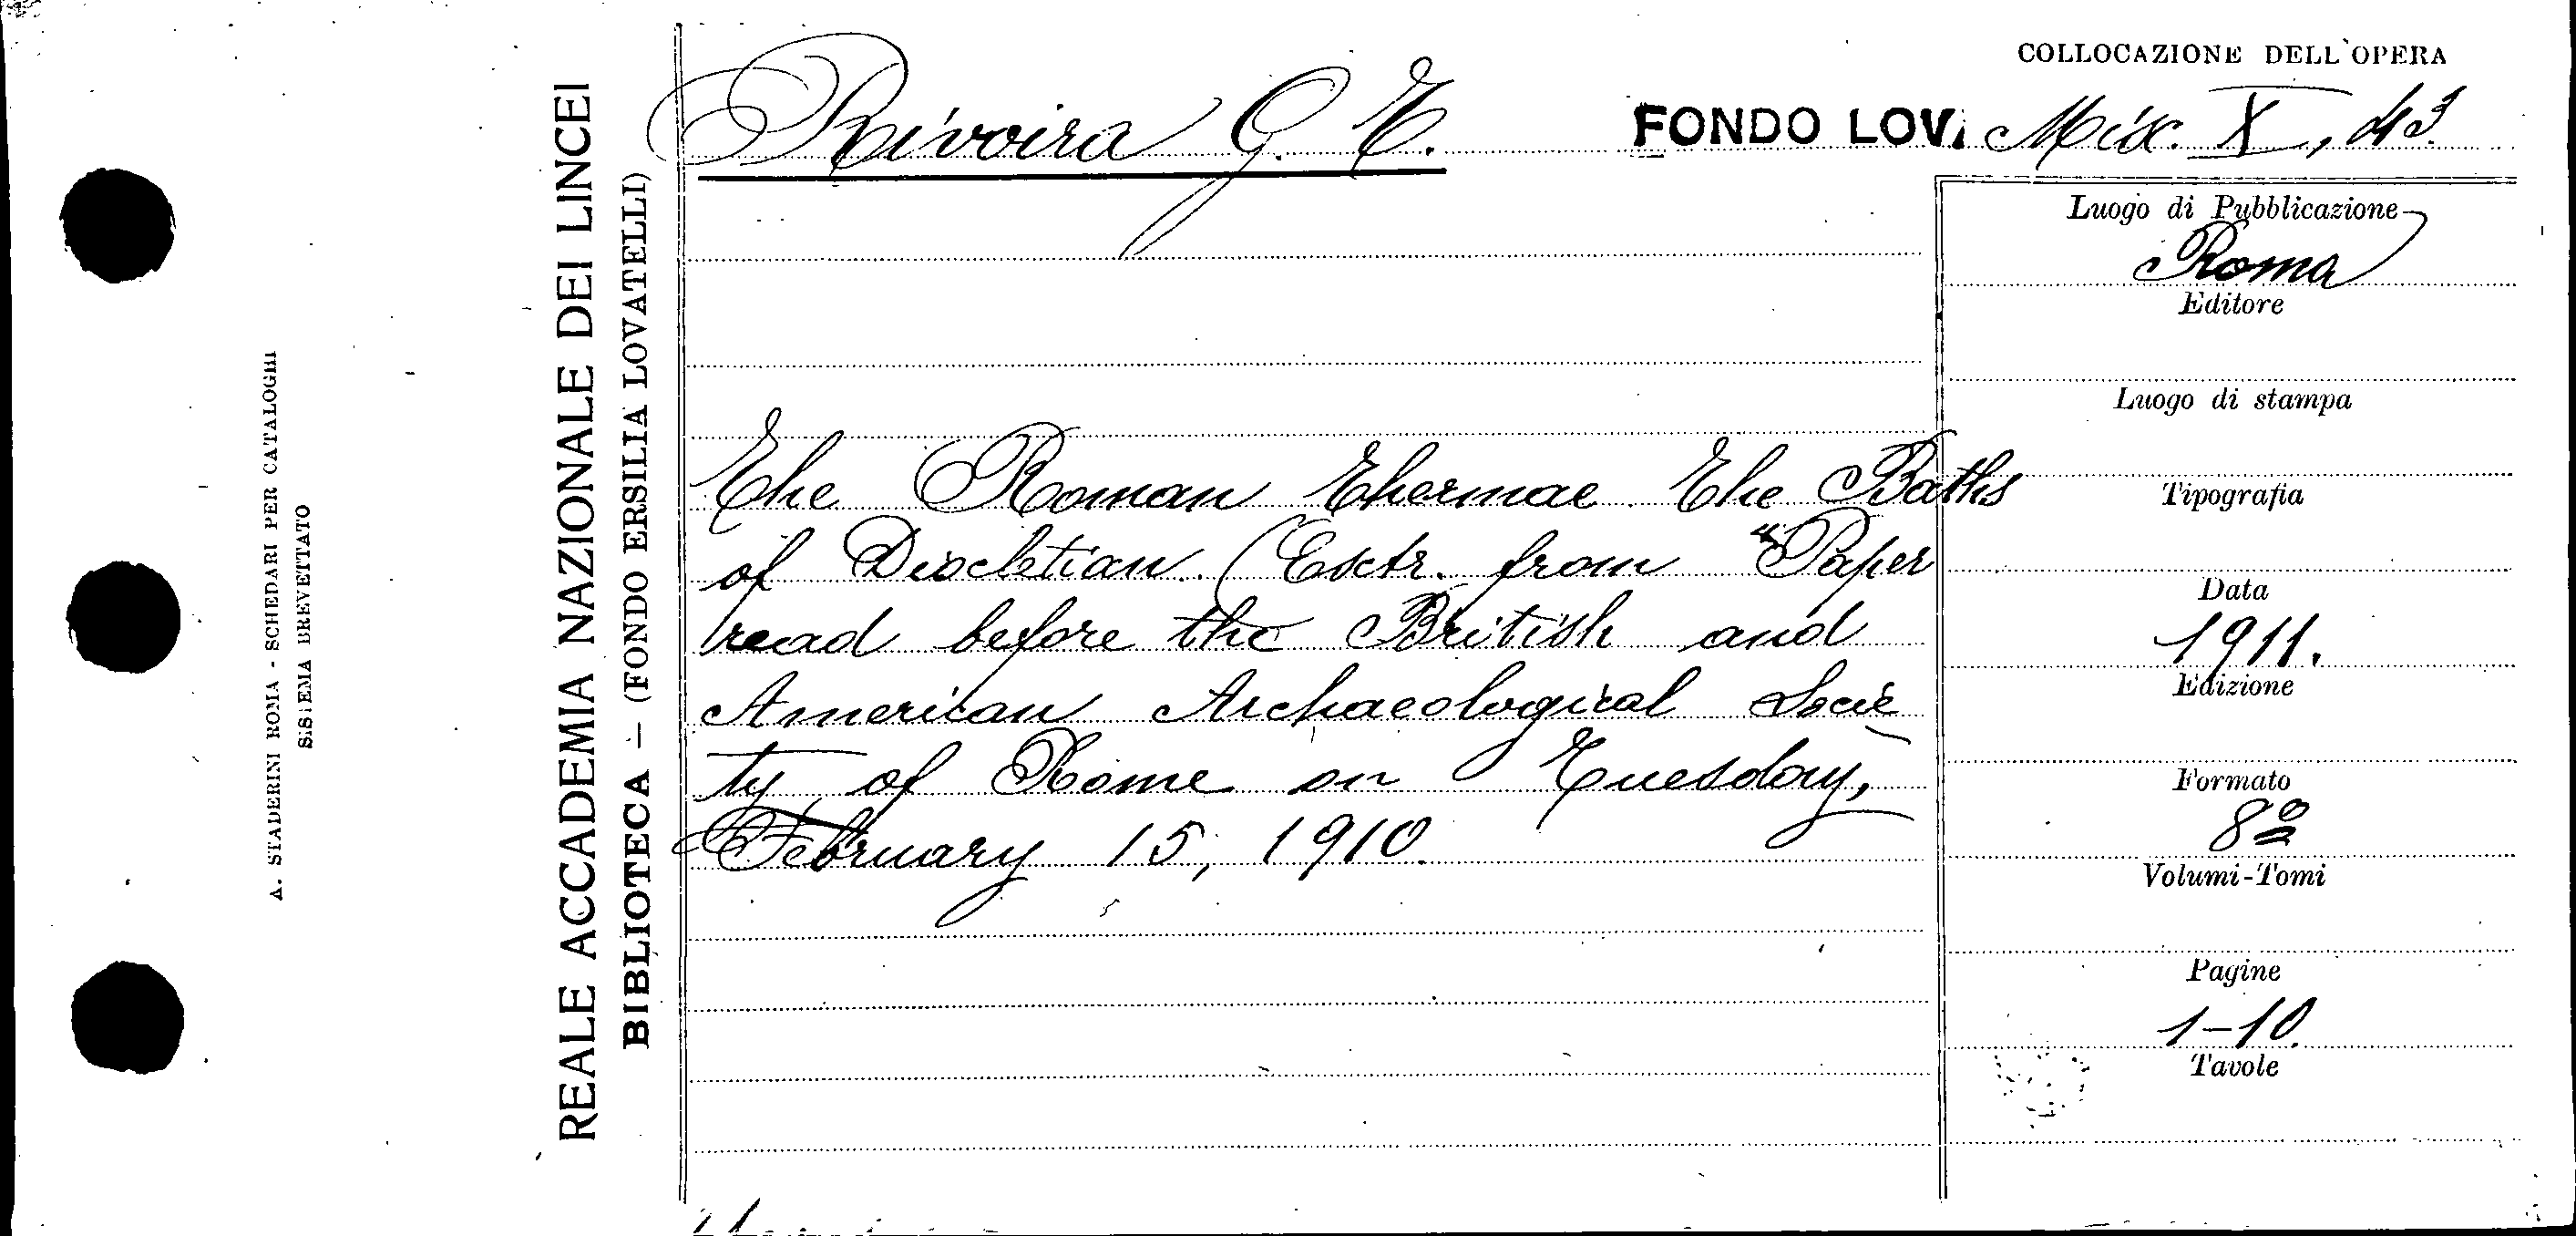 COLLOCAZIONE DELL'OPERA
Rivoira G. T.
FONDO LOV. Misc. X, 43
The Roman Thermae The Baths
of Diocletian. (Esctr. from "Paper
read before the British and
American Archaeological Socie
ty of Rome on Tuesday,
February 15, 1910.
Luogo di Pubblicazione
Roma
Editore
Luogo di stampa
Tipografia
Data
1911.
Edizione
Formato
8º
Volumi-Tomi
Pagine
1-10.
Tavole
REALE ACCADEMIA NAZIONALE DEI LINCEI
BIBLIOTECA – (FONDO ERSILIA LOVATELLI)
A. STADERINI ROMA - SCHEDARI PER CATALOGHI
SISTEMA BREVETTATO